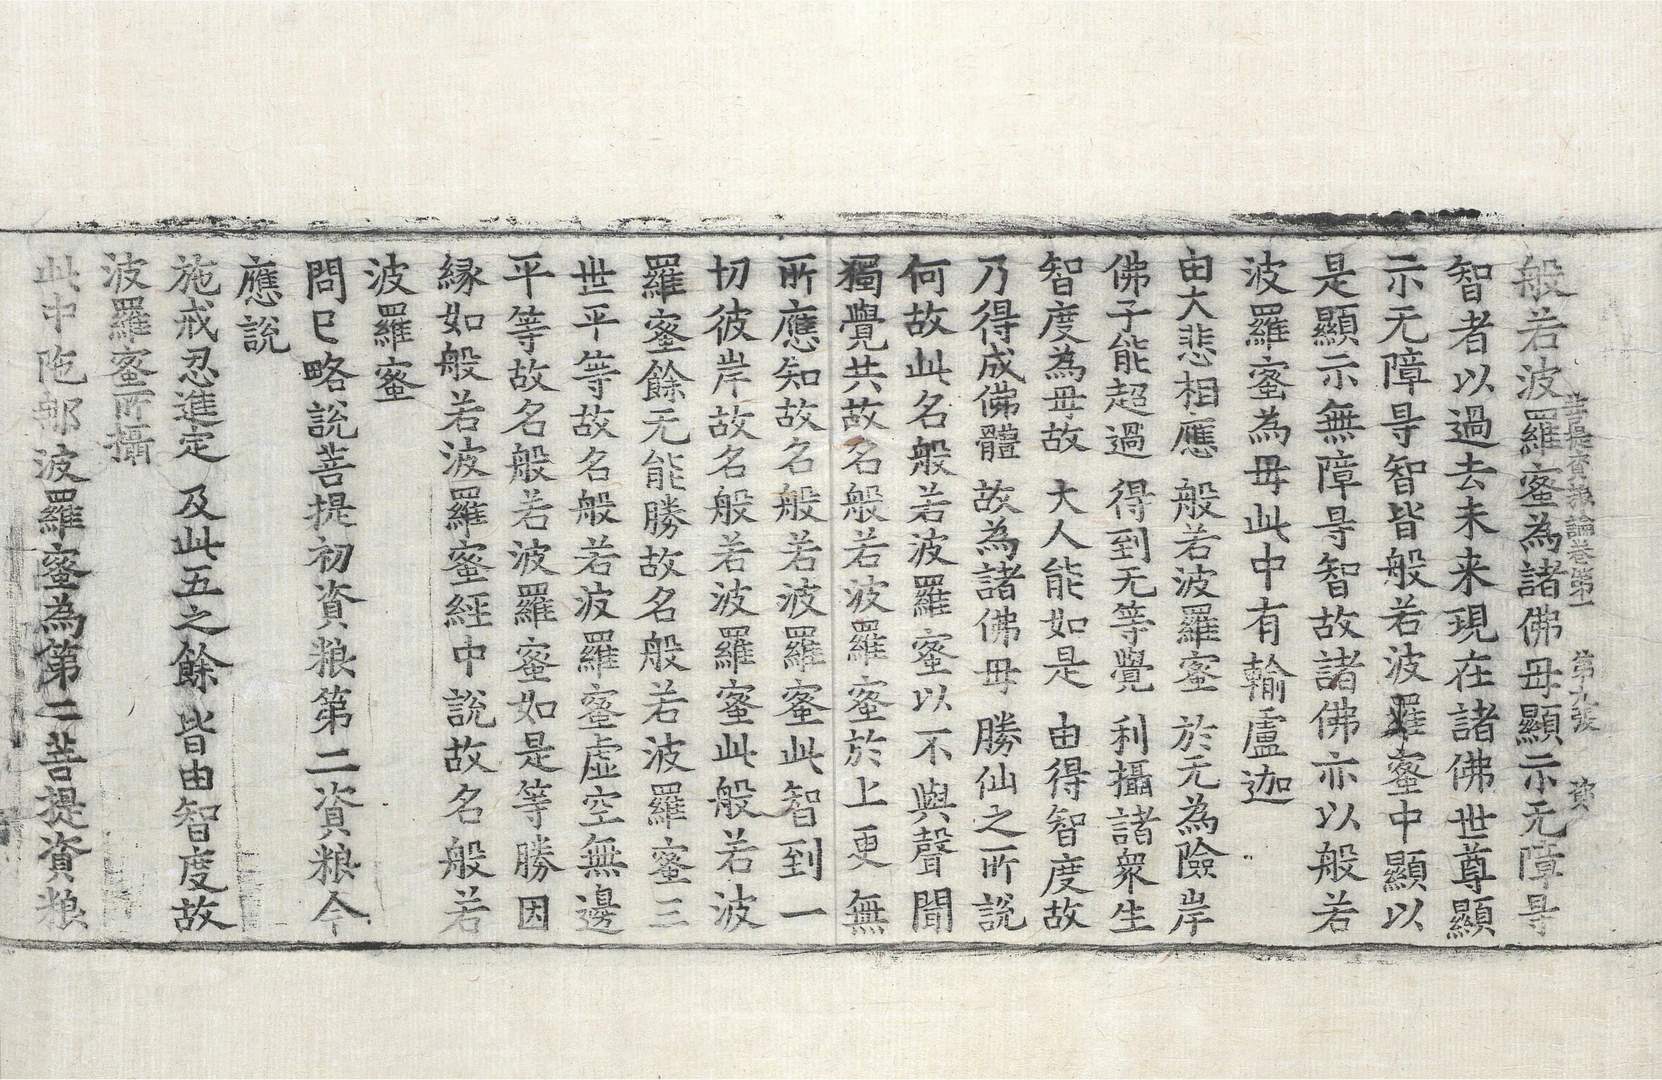 菩提資糧論卷第一 第九張 資
般若波羅蜜為諸佛母顯示无障㝵
智者以過去未来現在諸佛世尊顯
示无障㝵智皆般若波羅蜜中顯以
是顯示無障㝵智故諸佛亦以般若
波羅蜜為母此中有輸盧迦
由大悲相應 般若波羅蜜 於无為險岸
佛子能超過 得到无等覺 利攝諸衆生
智度為母故 大人能如是 由得智度故
乃得成佛體 故為諸佛母 勝仙之所説
何故此名般若波羅蜜以不與聲聞
獨覺共故名般若波羅蜜於上更無
所應知故名般若波羅蜜此智到一
切彼岸故名般若波羅蜜此般若波
羅蜜餘无能勝故名般若波羅蜜三
世平等故名般若波羅蜜虛空無邊
平等故名般若波羅蜜如是等勝因
縁如般若波羅蜜經中説故名般若
波羅蜜
問巳略説菩提初資粮第二資粮今
應説
施戒忍進定 及此五之餘 皆由智度故
波羅蜜所攝
此中陁那波羅蜜為第二菩提資粮